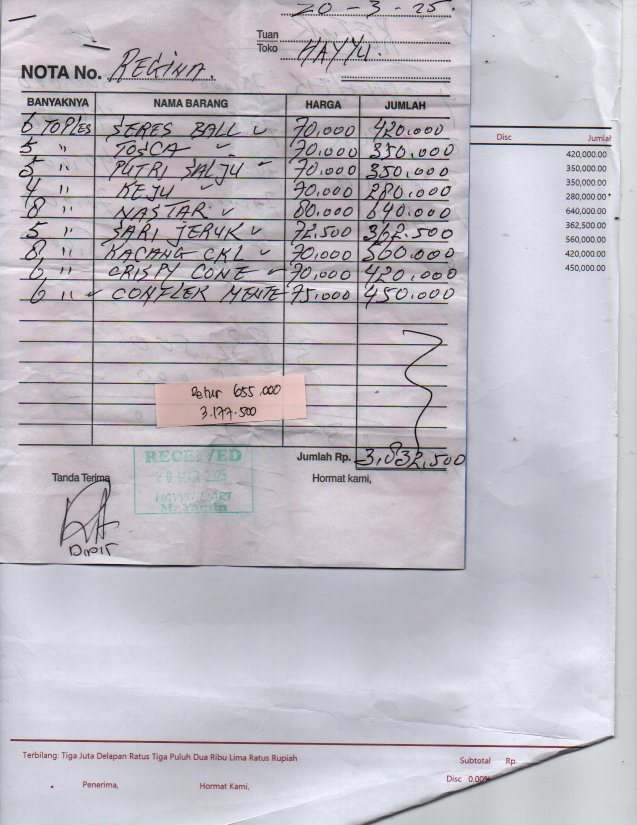 20 - 3 - 25.
Tuan
Toko HAYYU.
NOTA No. REGINA.
BANYAKNYA NAMA BARANG HARGA JUMLAH
6 TOPLES SERES BALL 70.000 420.000
5 " TOSCA 70.000 350.000
5 " PUTRI SALJU 70.000 350.000
4 " KEJU 70.000 280.000
8 " NASTAR 80.000 640.000
5 " SARI JERUK 72.500 362.500
8 " KACANG CKL 70.000 560.000
6 " CRISPY CONE 70.000 420.000
6 " CONFLEK MENTE 75.000 450.000
Retur 655.000
3.177.500
Jumlah Rp. 3.832.500
Tanda Terima Hormat kami,
RECEIVED
20 MAR 2025
DIPIT
Disc Jumlah
420,000.00
350,000.00
350,000.00
280,000.00
640,000.00
362,500.00
560,000.00
420,000.00
450,000.00
Terbilang: Tiga Juta Delapan Ratus Tiga Puluh Dua Ribu Lima Ratus Rupiah
Subtotal Rp.
Disc 0.00%
Penerima, Hormat Kami,